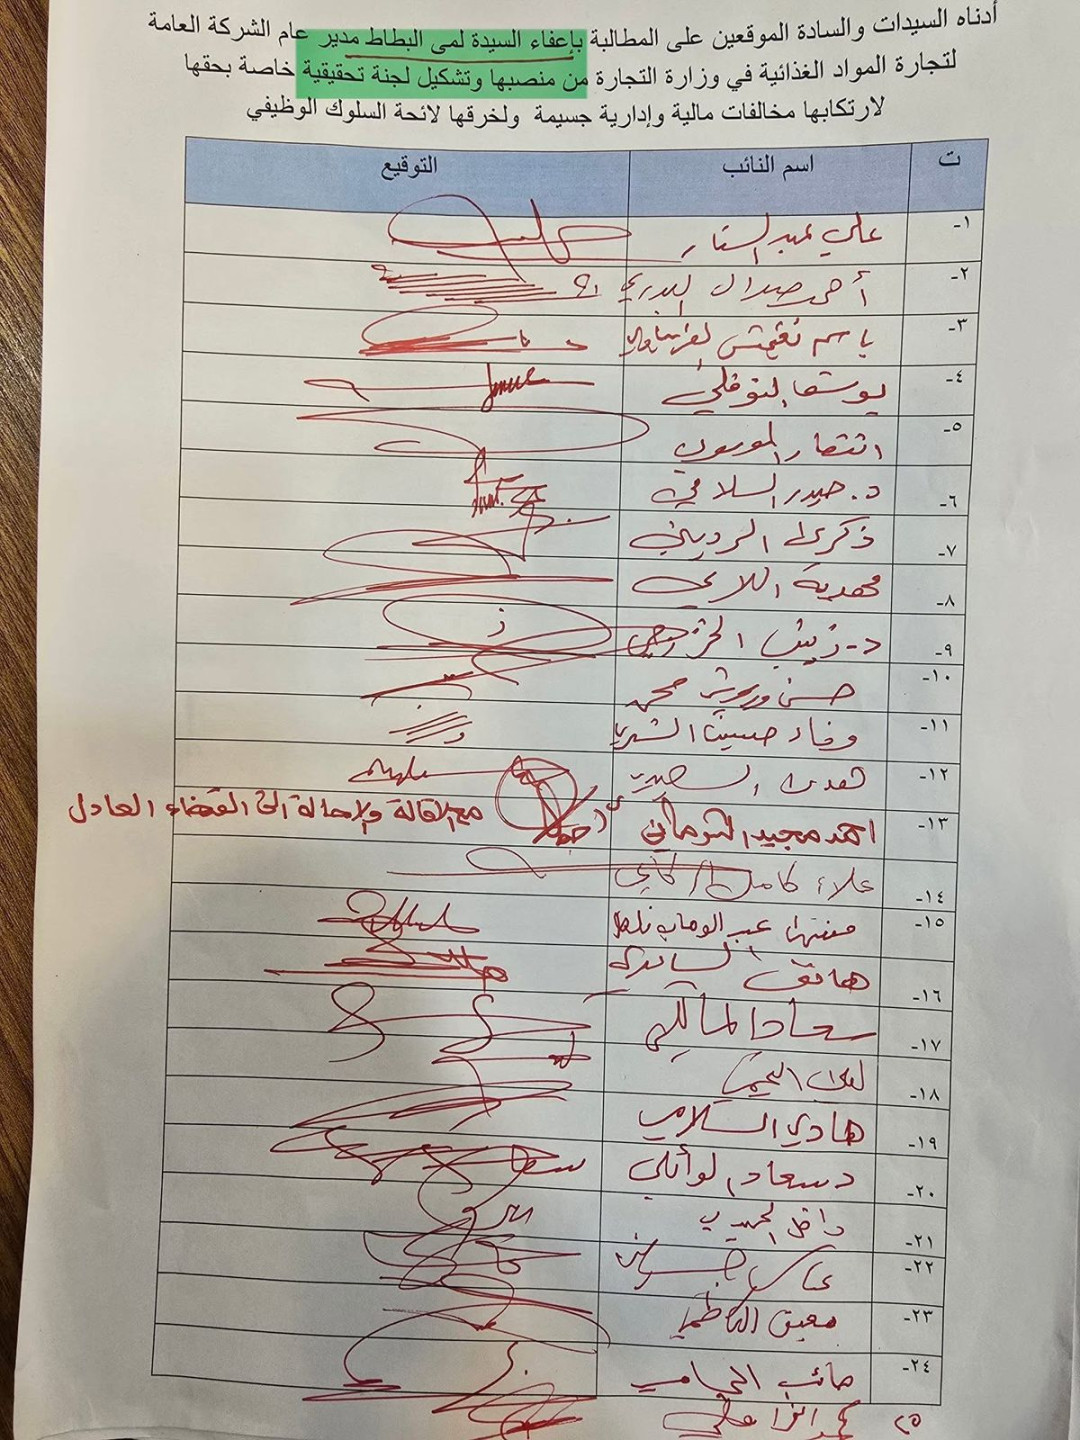 أدناه السيدات والسادة الموقعين على المطالبة بإعفاء السيدة لمى البطاط مدير عام الشركة العامة
لتجارة المواد الغذائية في وزارة التجارة من منصبها وتشكيل لجنة تحقيقية خاصة بحقها
لارتكابها مخالفات مالية وإدارية جسيمة ولخرقها لائحة السلوك الوظيفي
ت اسم النائب التوقيع
١- علي عبد الستار
٢- أحمد البدري
٣- باسم نغيمش الغريباوي
٤- يوسف
٥- انتصار الموسوي
٦- د. حيدر السلامي
٧- ذكرى الرديني
٨- مهدية اللامي
٩- د- زينب الخزرجي
١٠- حسن وريوش محمد
١١- وفاء حسين الشمري
١٢- هدى السيد
١٣- احمد مجيد الشرماني مع اقالة والاحالة الى القضاء العادل
١٤- علاء كامل الركابي
١٥- عبد الوهاب
١٦- هاتف الساعدي
١٧- سعاد المالكي
١٨-
١٩- هادي السلامي
٢٠- د سعاد الوائلي
٢١-
٢٢-
٢٣- معين الكاظمي
٢٤- صائب الحجامي
٢٥ محمد الخزاعي